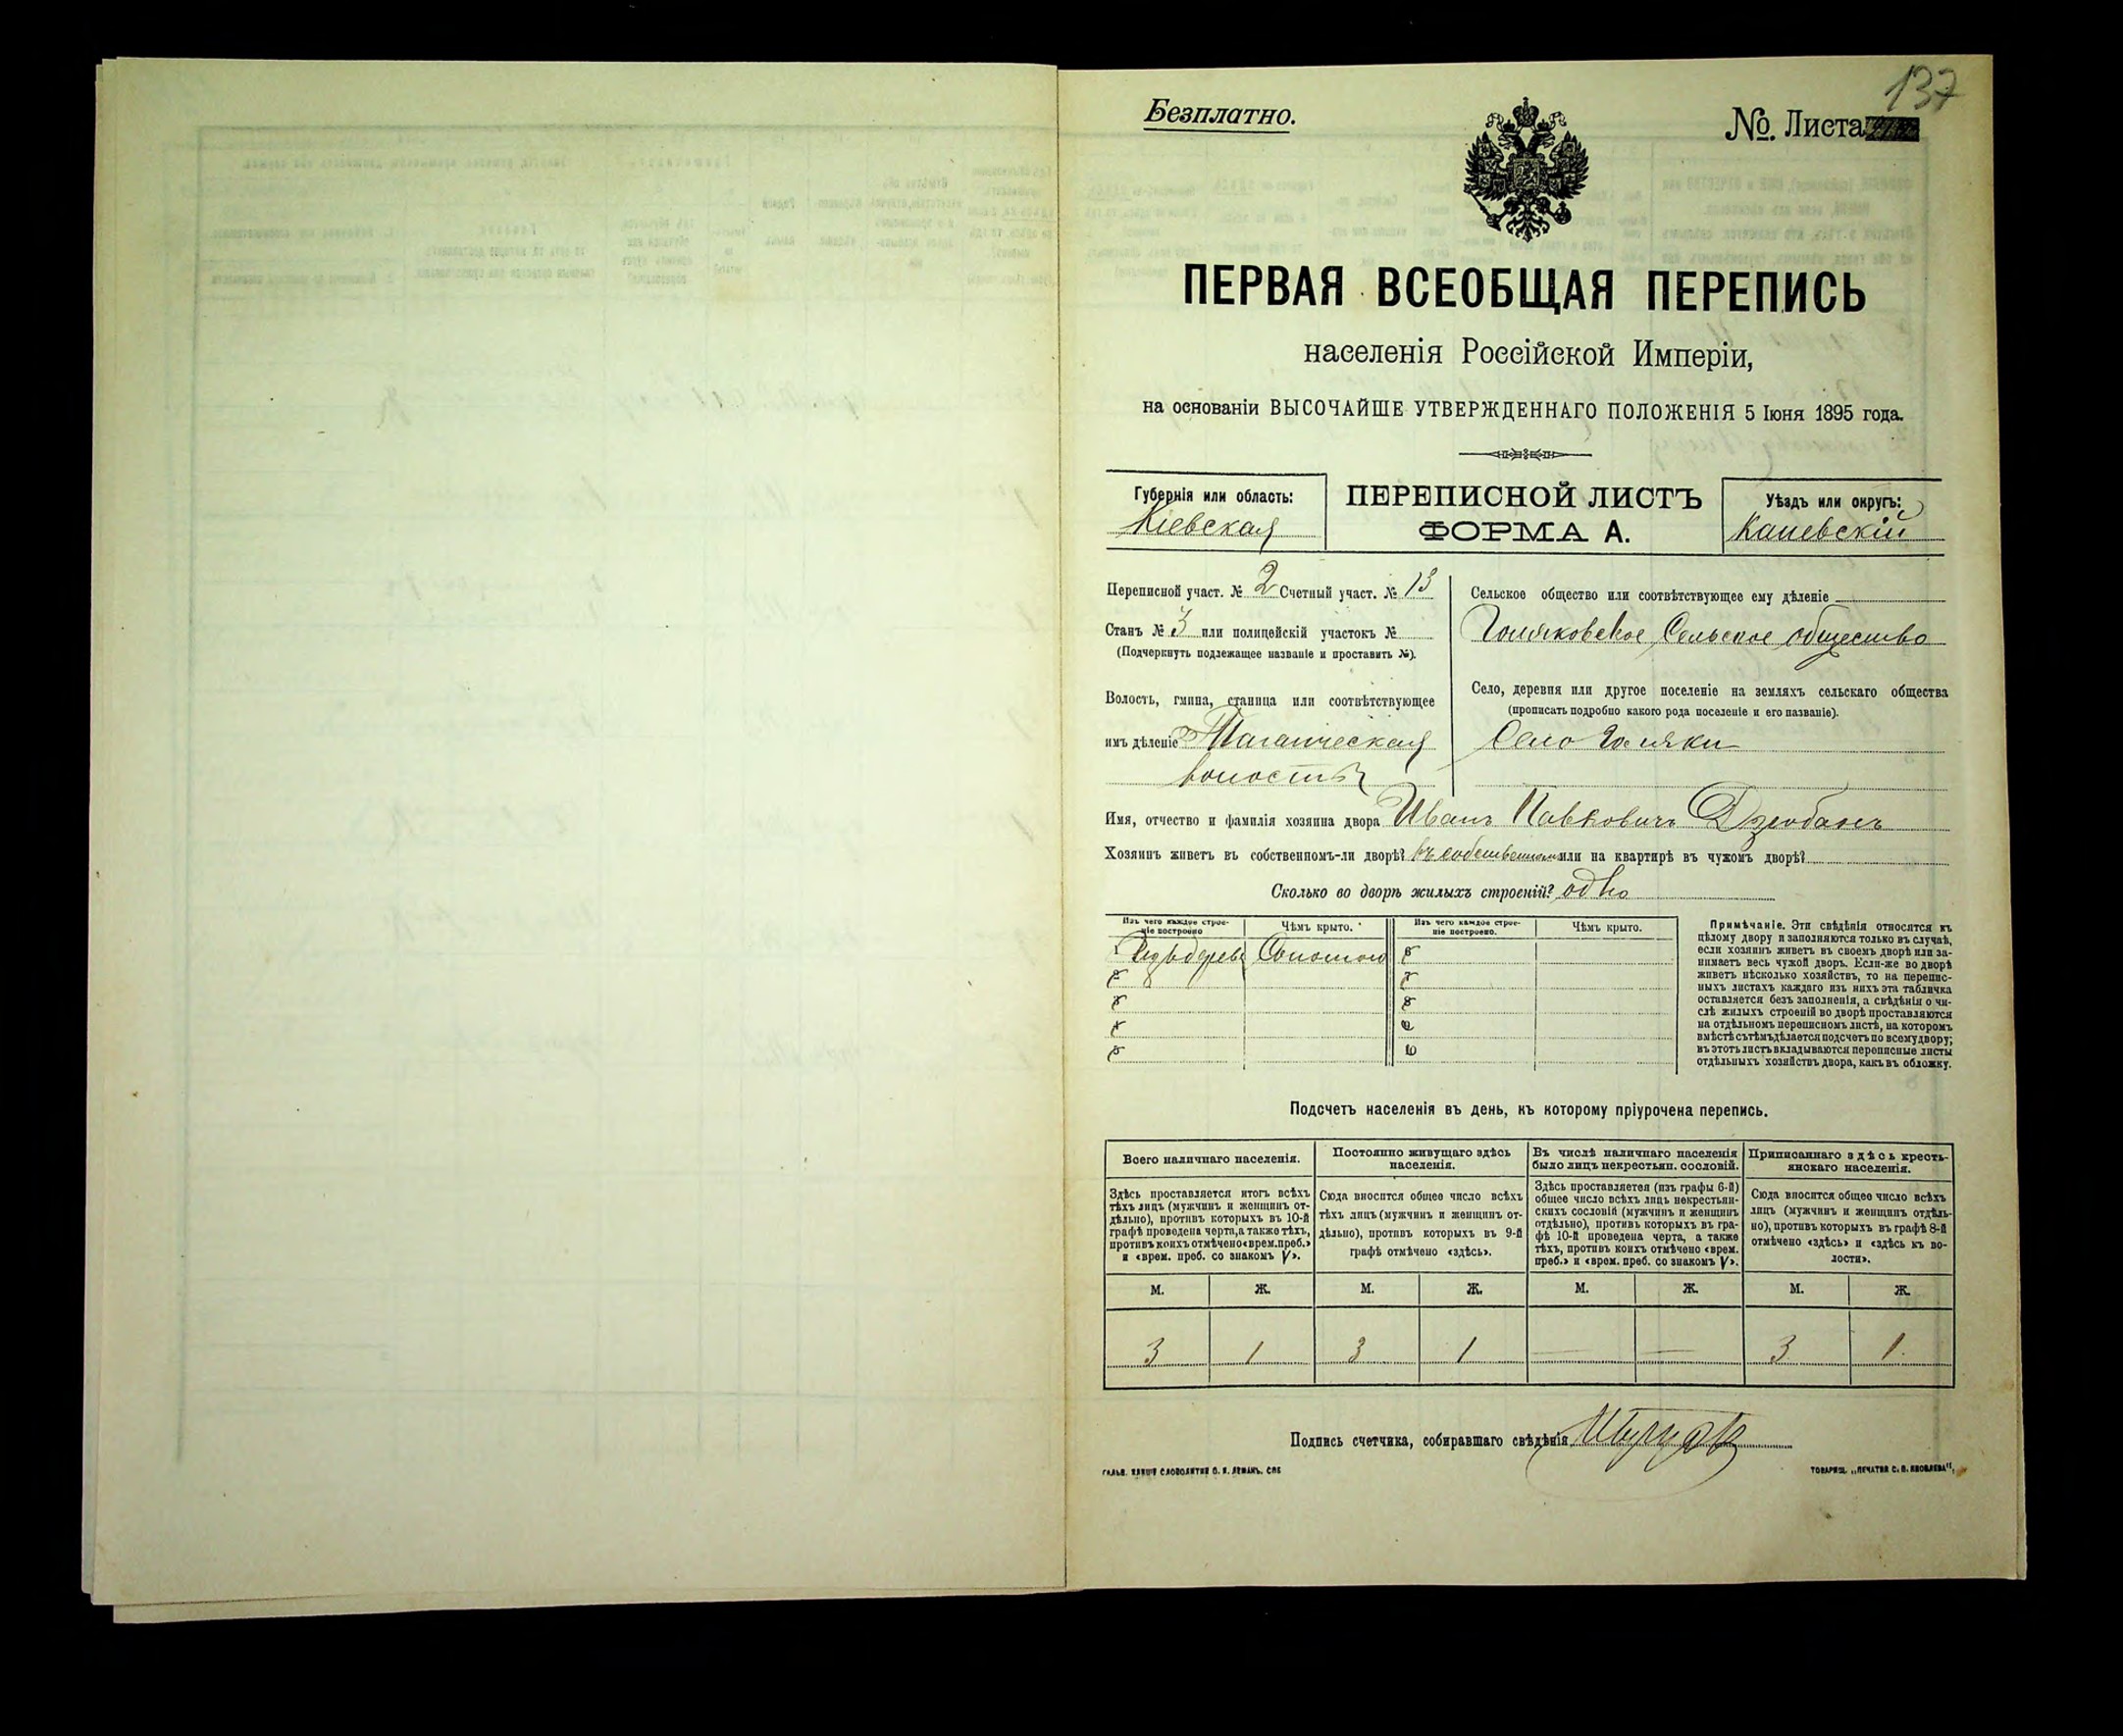 137
Безплатно.
№. Листа
ПЕРВАЯ ВСЕОБЩАЯ ПЕРЕПИСЬ
населенія Россійской Имперіи,
на основаніи ВЫСОЧАЙШЕ УТВЕРЖДЕННАГО ПОЛОЖЕНІЯ 5 Іюня 1895 года.
Губернія или область:
Кіевская
ПЕРЕПИСНОЙ ЛИСТЪ
ФОРМА А.
Уѣздъ или округъ:
Каневскій
Переписной участ. № 2 Счетный участ. № 13
Станъ № 3 или полицейскій участокъ №
(Подчеркнуть подлежащее названіе и проставить №).
Волость, гмина, станица или соотвѣтствующее
имъ дѣленіе Таганческая
волость
Сельское общество или соотвѣтствующее ему дѣленіе
Голяковское Сельское общество
Село, деревня или другое поселеніе на земляхъ сельскаго общества
(прописать подробно какого рода поселеніе и его названіе).
Село Голяки
Имя, отчество и фамилія хозяина двора Иванъ Павловичъ
Хозяинъ живетъ въ собственномъ-ли дворѣ? въ собственномъ или на квартирѣ въ чужомъ дворѣ?
Сколько во дворѣ жилыхъ строеній? одно
Изъ чего каждое строеніе построено
Чѣмъ крыто.
Изъ чего каждое строеніе построено.
Чѣмъ крыто.
1 Изъ дерева Соломою 6
2 7
3 8
4 9
5 10
Примѣчаніе. Эти свѣдѣнія относятся къ
цѣлому двору и заполняются только въ случаѣ,
если хозяинъ живетъ въ своемъ дворѣ или за-
нимаетъ весь чужой дворъ. Если-же во дворѣ
живетъ нѣсколько хозяйствъ, то на перепис-
ныхъ листахъ каждаго изъ нихъ эта табличка
оставляется безъ заполненія, а свѣдѣнія о чи-
слѣ жилыхъ строеній во дворѣ проставляются
на отдѣльномъ переписномъ листѣ, на которомъ
вмѣстѣ съ тѣмъ дѣлается подсчетъ по всему двору;
въ этотъ листъ вкладываются переписные листы
отдѣльныхъ хозяйствъ двора, какъ въ обложку.
Подсчетъ населенія въ день, къ которому пріурочена перепись.
Всего наличнаго населенія.
Здѣсь проставляется итогъ всѣхъ
тѣхъ лицъ (мужчинъ и женщинъ от-
дѣльно), противъ которыхъ въ 10-й
графѣ проведена черта, а также тѣхъ,
противъ коихъ отмѣчено «врем. преб.»
и «врем. преб. со знакомъ V».
Постоянно живущаго здѣсь
населенія.
Сюда вносится общее число всѣхъ
тѣхъ лицъ (мужчинъ и женщинъ от-
дѣльно), противъ которыхъ въ 9-й
графѣ отмѣчено «здѣсь».
Въ числѣ наличнаго населенія
было лицъ некрестьян. сословій.
Здѣсь проставляется (изъ графы 6-й)
общее число всѣхъ лицъ некрестьян-
скихъ сословій (мужчинъ и женщинъ
отдѣльно), противъ которыхъ въ гра-
фѣ 10-й проведена черта, а также
тѣхъ, противъ коихъ отмѣчено «врем.
преб.» и «врем. преб. со знакомъ V».
Приписаннаго здѣсь кресть-
янскаго населенія.
Сюда вносится общее число всѣхъ
лицъ (мужчинъ и женщинъ отдѣль-
но), противъ которыхъ въ графѣ 8-й
отмѣчено «здѣсь» и «здѣсь къ во-
лости».
М. Ж. М. Ж. М. Ж. М. Ж.
3 1 3 1 — — 3 1
Подпись счетчика, собиравшаго свѣдѣнія
ТОВАРИЩ. „ПЕЧАТНЯ С. П. ЯКОВЛЕВА",